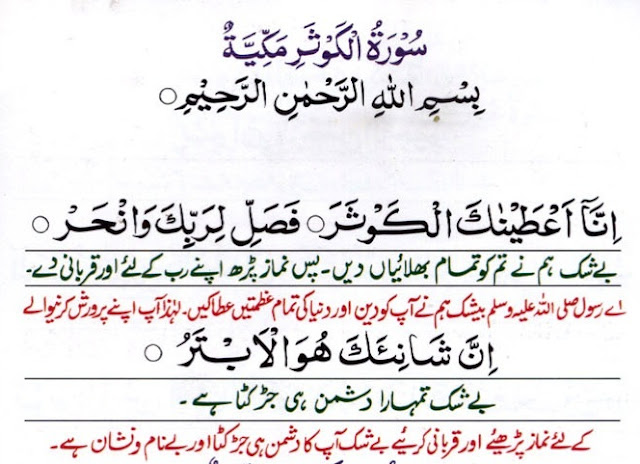 سُوْرَةُ الْكَوْثَرِ مَكِّيَّةٌ
بِسْمِ اللهِ الرَّحْمٰنِ الرَّحِيْمِ ○
اِنَّاۤ اَعْطَيْنٰكَ الْكَوْثَرَ ○ فَصَلِّ لِرَبِّكَ وَانْحَرْ ○
بے شک ہم نے تم کو تمام بھلائیاں دیں۔ پس نماز پڑھ اپنے رب کے لئے اور قربانی دے۔
اے رسول صلی اللہ علیہ وسلم بیشک ہم نے آپ کو دین اور دنیا کی تمام عظمتیں عطا کیں۔ لہٰذا آپ اپنے پرورش کرنیوالے
اِنَّ شَانِئَكَ هُوَ الْاَبْتَرُ ○
بے شک تمہارا دشمن ہی جڑ کٹا ہے۔
کے لئے نماز پڑھیئے اور قربانی کریئے بے شک آپ کا دشمن ہی جڑ کٹا اور بے نام و نشان ہے۔